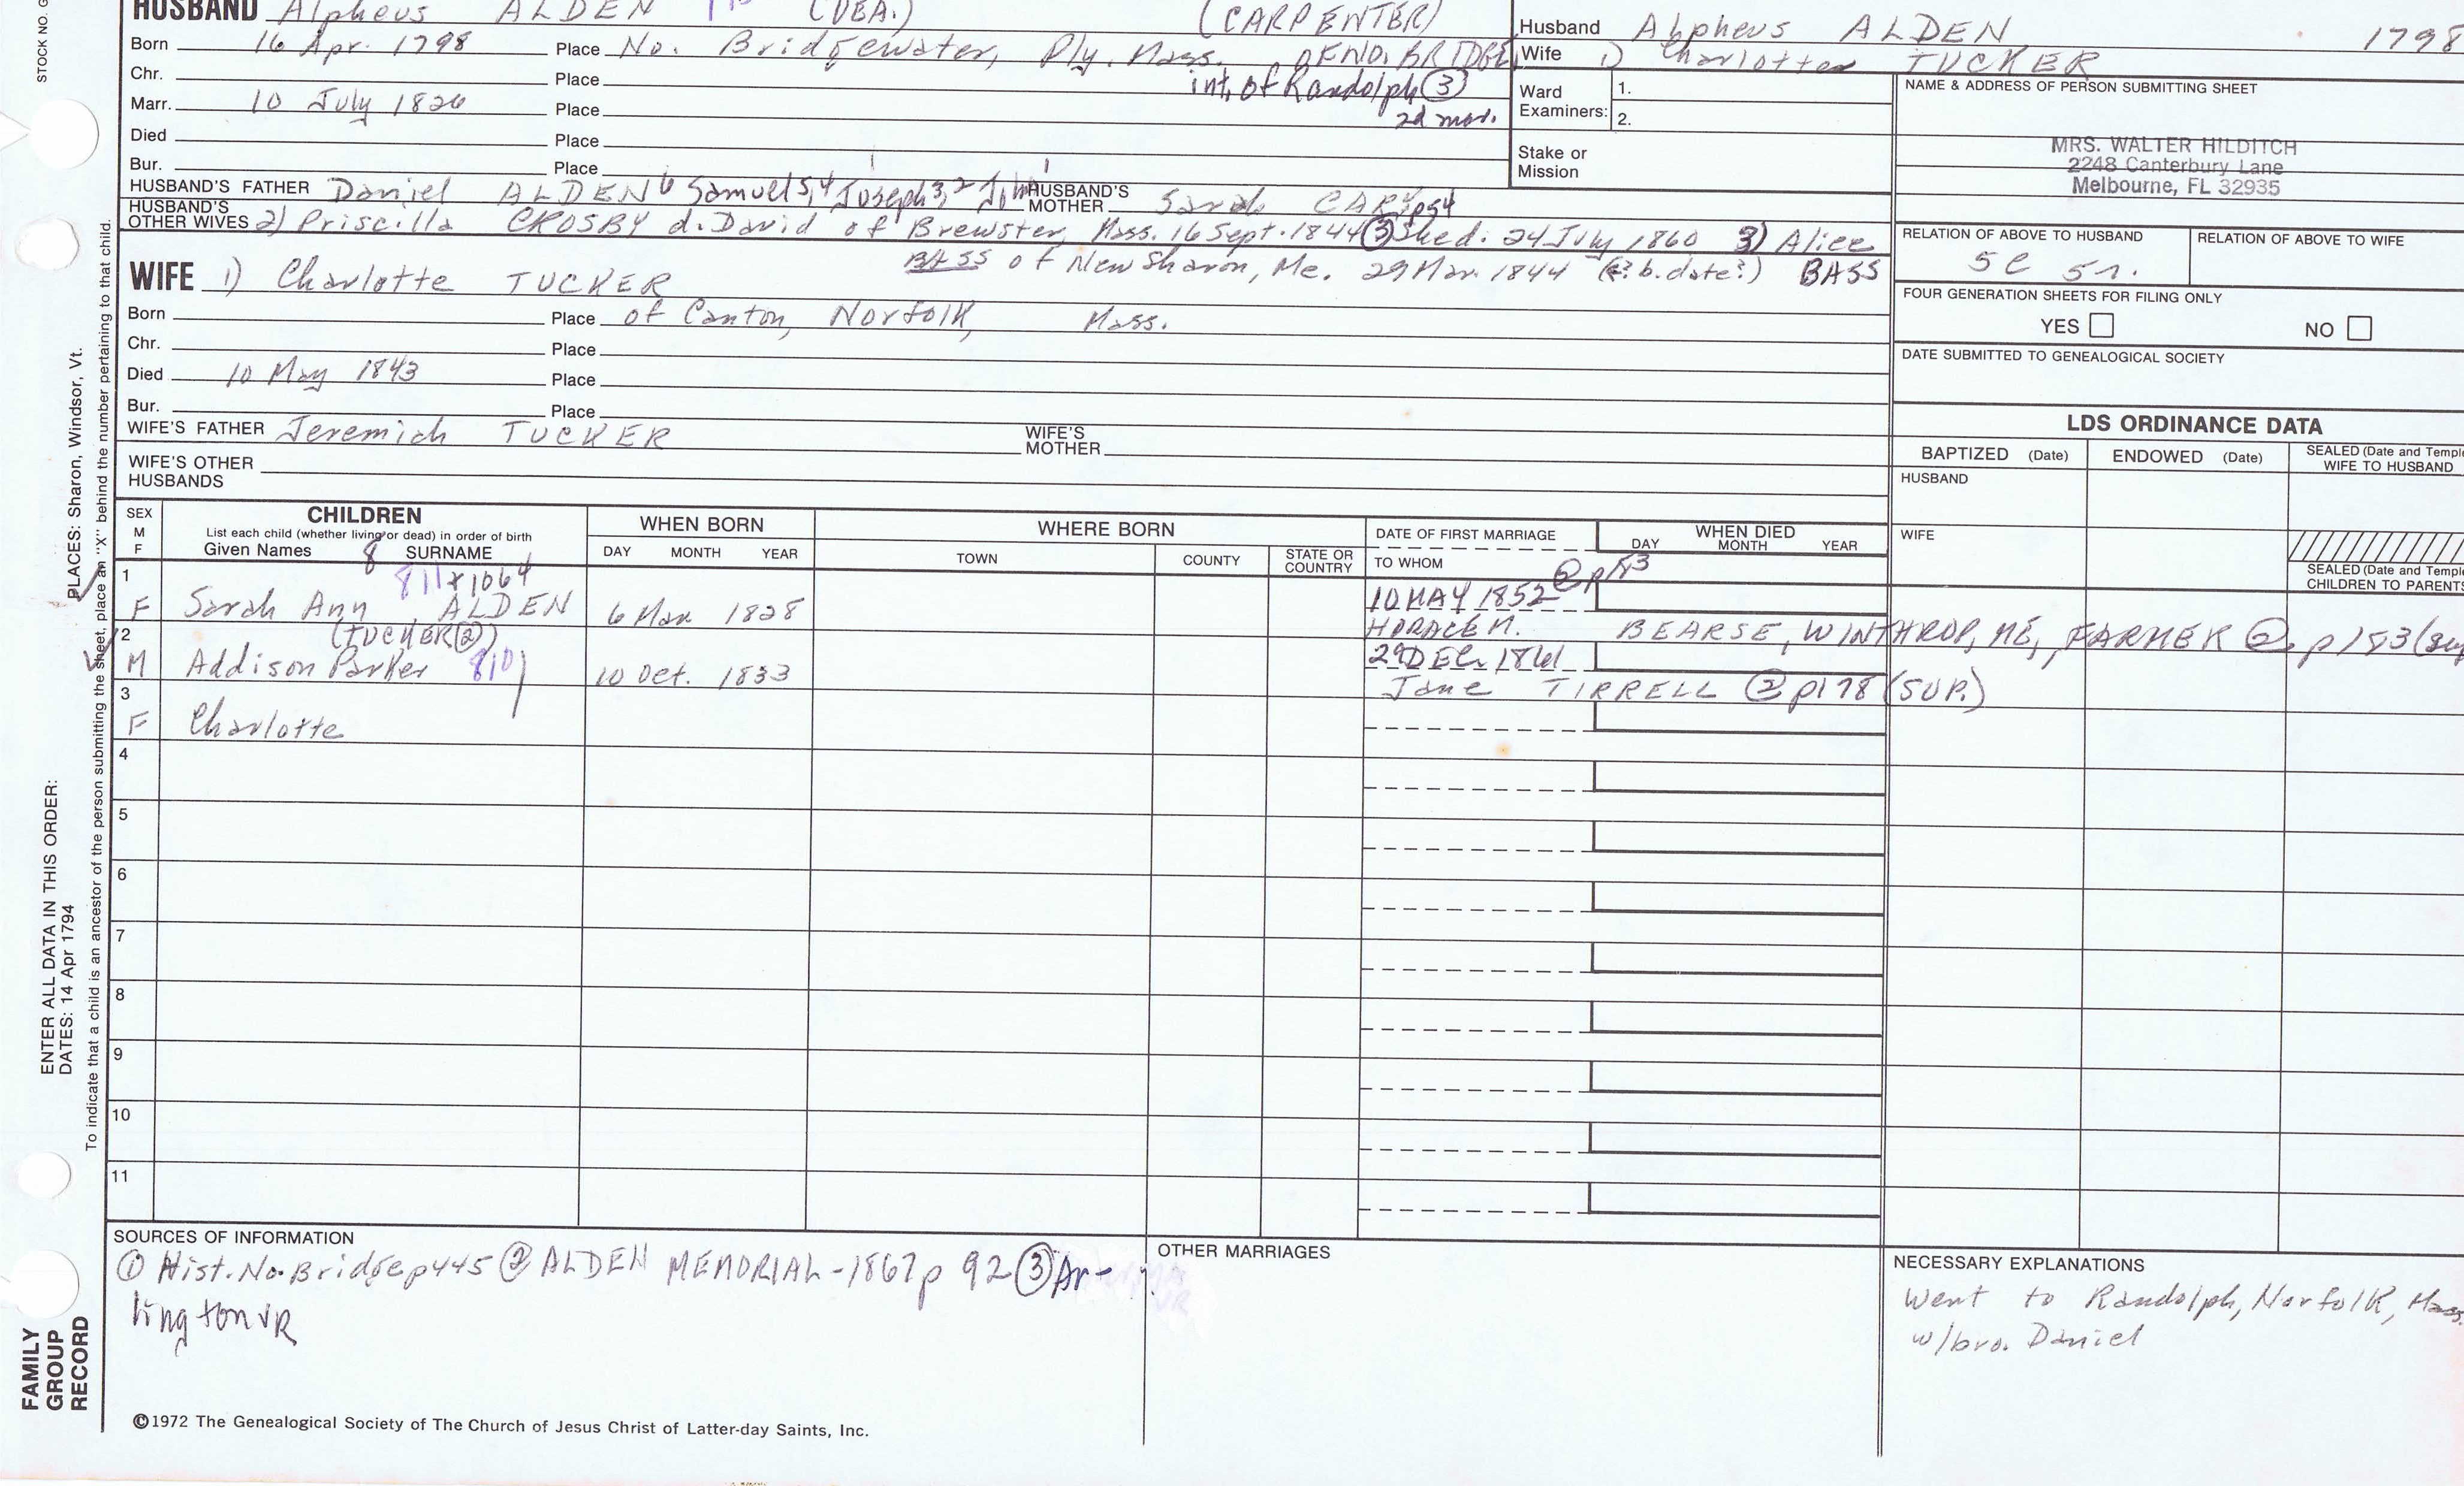 HUSBAND Alpheus ALDEN (DEA.) (CARPENTER)
Born 16 Apr. 1798 Place No. Bridgewater, Ply. Mass. OF NO. BRIDGE.
Chr. Place int. of Randolph (3)
Marr. 10 July 1826 Place 2d mar.
Died Place
Bur. Place
HUSBAND'S FATHER Daniel ALDEN 6 Samuel 5,4 Joseph 3,2 John 1 HUSBAND'S MOTHER Sarah CARY p54
HUSBAND'S OTHER WIVES 2) Priscilla CROSBY d. David of Brewster, Mass. 16 Sept. 1844 (3) She d. 24 July 1860 3) Alice
BASS of New Sharon, Me. 29 Mar. 1844 (? b. date?) BASS
WIFE 1) Charlotte TUCKER
Born Place of Canton, Norfolk, Mass.
Chr. Place
Died 10 May 1843 Place
Bur. Place
WIFE'S FATHER Jeremich TUCKER WIFE'S MOTHER
WIFE'S OTHER HUSBANDS
Husband Alpheus ALDEN 1798
Wife 1) Charlotte TUCKER
Ward Examiners: 1.
2.
Stake or Mission
NAME & ADDRESS OF PERSON SUBMITTING SHEET
MRS. WALTER HILDITCH
2248 Canterbury Lane
Melbourne, FL 32935
RELATION OF ABOVE TO HUSBAND RELATION OF ABOVE TO WIFE
5c 5r.
FOUR GENERATION SHEETS FOR FILING ONLY
YES NO
DATE SUBMITTED TO GENEALOGICAL SOCIETY
LDS ORDINANCE DATA
BAPTIZED (Date) ENDOWED (Date) SEALED (Date and Temple
WIFE TO HUSBAND
HUSBAND
WIFE
SEALED (Date and Temple
CHILDREN TO PARENTS
SEX M F
CHILDREN
List each child (whether living or dead) in order of birth
Given Names 8 SURNAME
WHEN BORN
DAY MONTH YEAR
WHERE BORN
TOWN COUNTY STATE OR COUNTRY
DATE OF FIRST MARRIAGE
TO WHOM
WHEN DIED
DAY MONTH YEAR
1 811 x1064 10 MAY 1852 (2) p183
F Sarah Ann ALDEN 6 Mar 1828 HORACE M. BEARSE, WINTHROP, ME, FARMER (2) p183 (sup
2 (TUCKER (2)) 29 DEC. 1861
M Addison Parker 810 10 Oct. 1833 Jane TIRRELL (2) p178 (SUP.)
3
F Charlotte
4
5
6
7
8
9
10
11
SOURCES OF INFORMATION
① Hist. No. Bridge p445 ② ALDEN MEMORIAL - 1867 p 92 ③ Ar-
lington VR
OTHER MARRIAGES
NECESSARY EXPLANATIONS
Went to Randolph, Norfolk, Mass.
w/bro. Daniel
©1972 The Genealogical Society of The Church of Jesus Christ of Latter-day Saints, Inc.
STOCK NO. G
ENTER ALL DATA IN THIS ORDER:
PLACES: Sharon, Windsor, Vt.
DATES: 14 Apr 1794
To indicate that a child is an ancestor of the person submitting the sheet, place an "X" behind the number pertaining to that child.
FAMILY
GROUP
RECORD